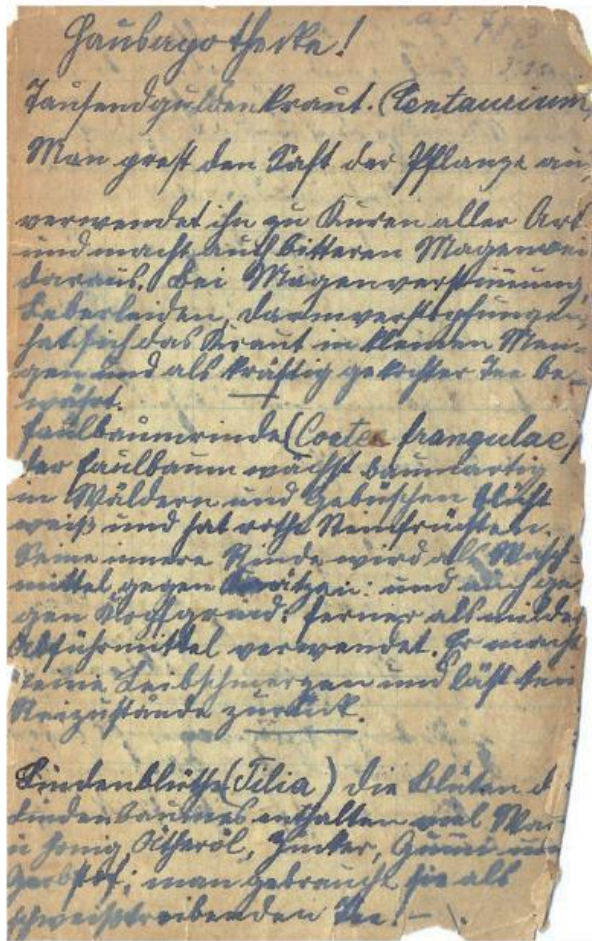 Hausapotheke!
Tausendguldenkraut. (Centaurium)
Man preßt den Saft der Pflanze au
verwendet ihn zu Kuren aller Art
und macht auch bitteren Magenwei
daraus. Bei Magenverstimmung,
Leberleiden, Darmverstopfungen,
hat sich das Kraut in kleinen Men-
gen und als kräftig gekochter Tee be-
währt.
Faulbaumrinde (Cortex frangulae)
der Faulbaum wächst baumartig
in Wäldern und Gebüschen blüht
weiß und hat rothe Steinfrüchten.
Seine innere Rinde wird als Wasch-
mittel gegen Krätzen: und auch ge-
gen Kopfgrind: ferner als mildes
Abführmittel verwendet. Er macht
keine Leibschmerzen und läßt kein
Reizustande zurück.
Lindenblüthe (Tilia) die Blüten d
Lindenbaumes enthalten viel Wa
u Honig Ätheröl, Zucker, Gummi un
Gerbstof; man gebraucht sie als
schweißtreibenden Tee! –